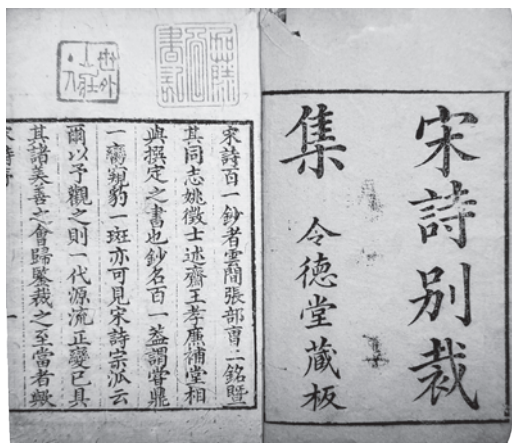 宋詩別裁
集
令徳堂藏板
宋詩百一鈔者雲間張部曹二銘暨
其同志姚徵士述齋王孝廉補堂相
與撰定之書也鈔名百一蓋謂嘗鼎
一臠豹一斑亦可見宋詩宗泒云
爾以予觀之則一代源流正變已具
其諸美善之會歸鑒裁之至當者歟
一